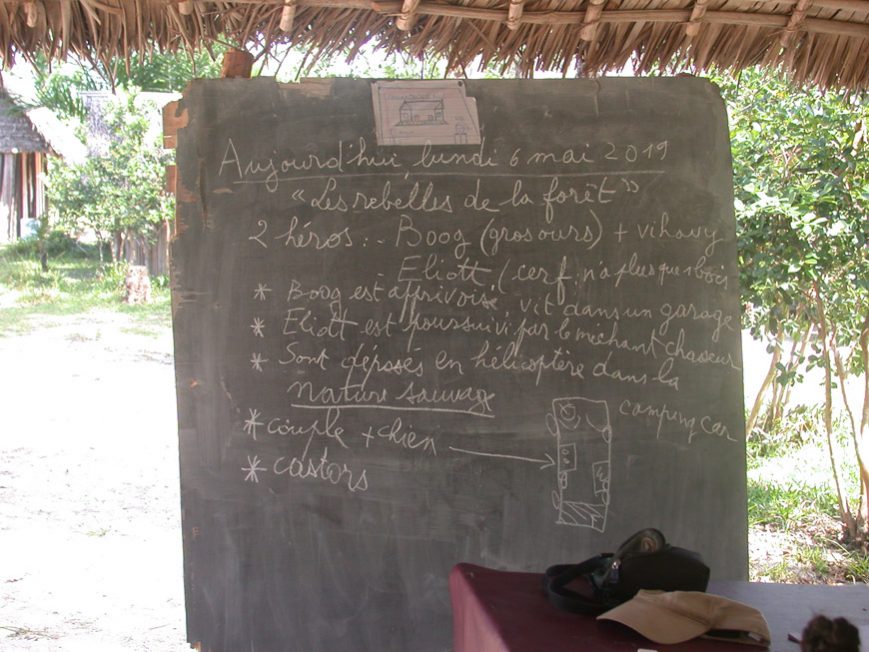 Aujourd'hui, lundi 6 mai 2019
"Les rebelles de la forêt"
2 héros : - Boog (gros ours) + vihavy
- Eliott (cerf n'a plus que 1 bois
* Boog est apprivoisé, vit dans un garage
* Eliott est poursuivi par le méchant chasseur
* Sont déposés en hélicoptère dans la
nature sauvage
* couple + chien
camping car
* castors